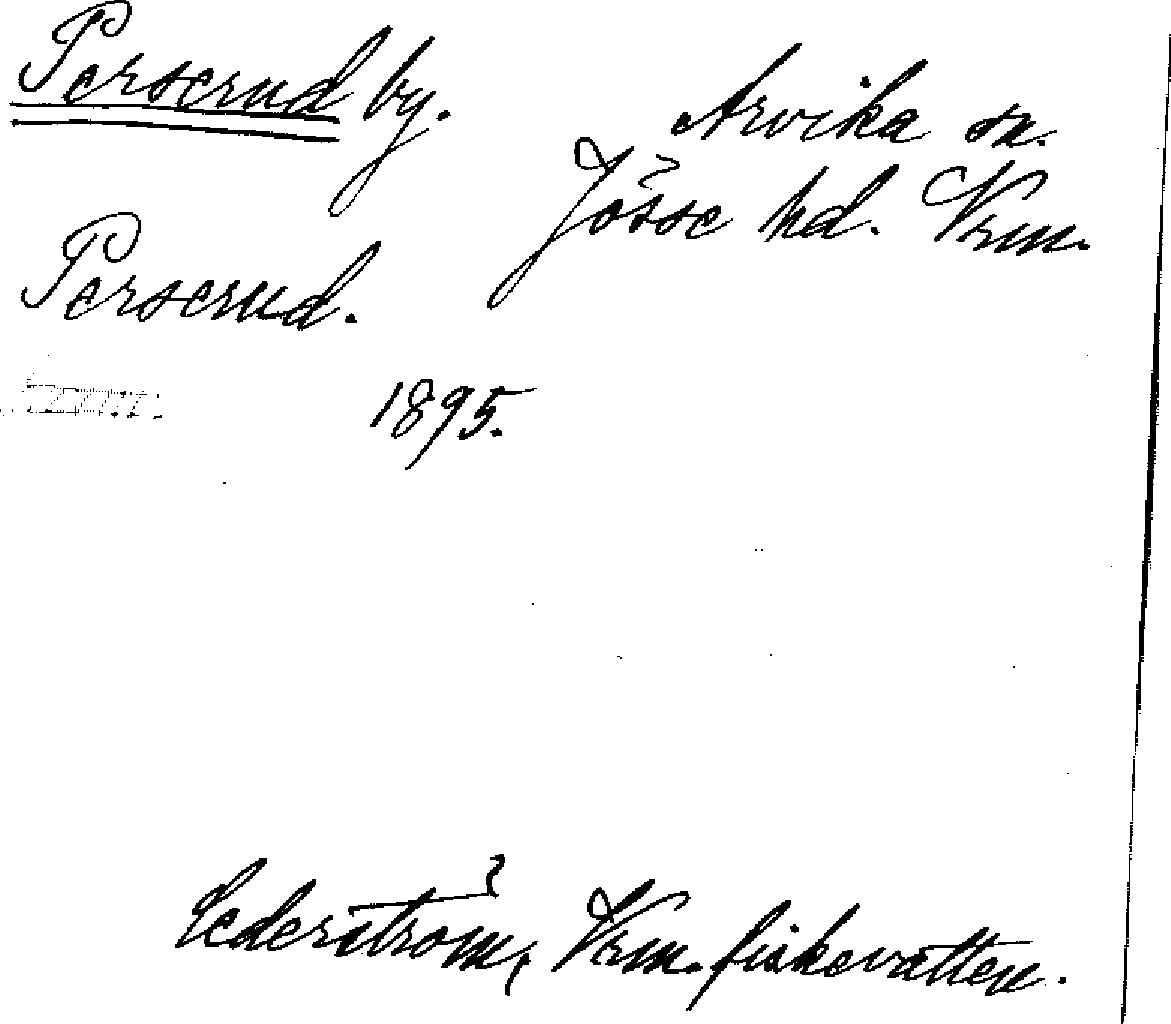 Perserud by.
Arvika sn.
Jösse hd. Vrm.
Perserud.
1895.
Cederström, Vrm. fiskevatten.